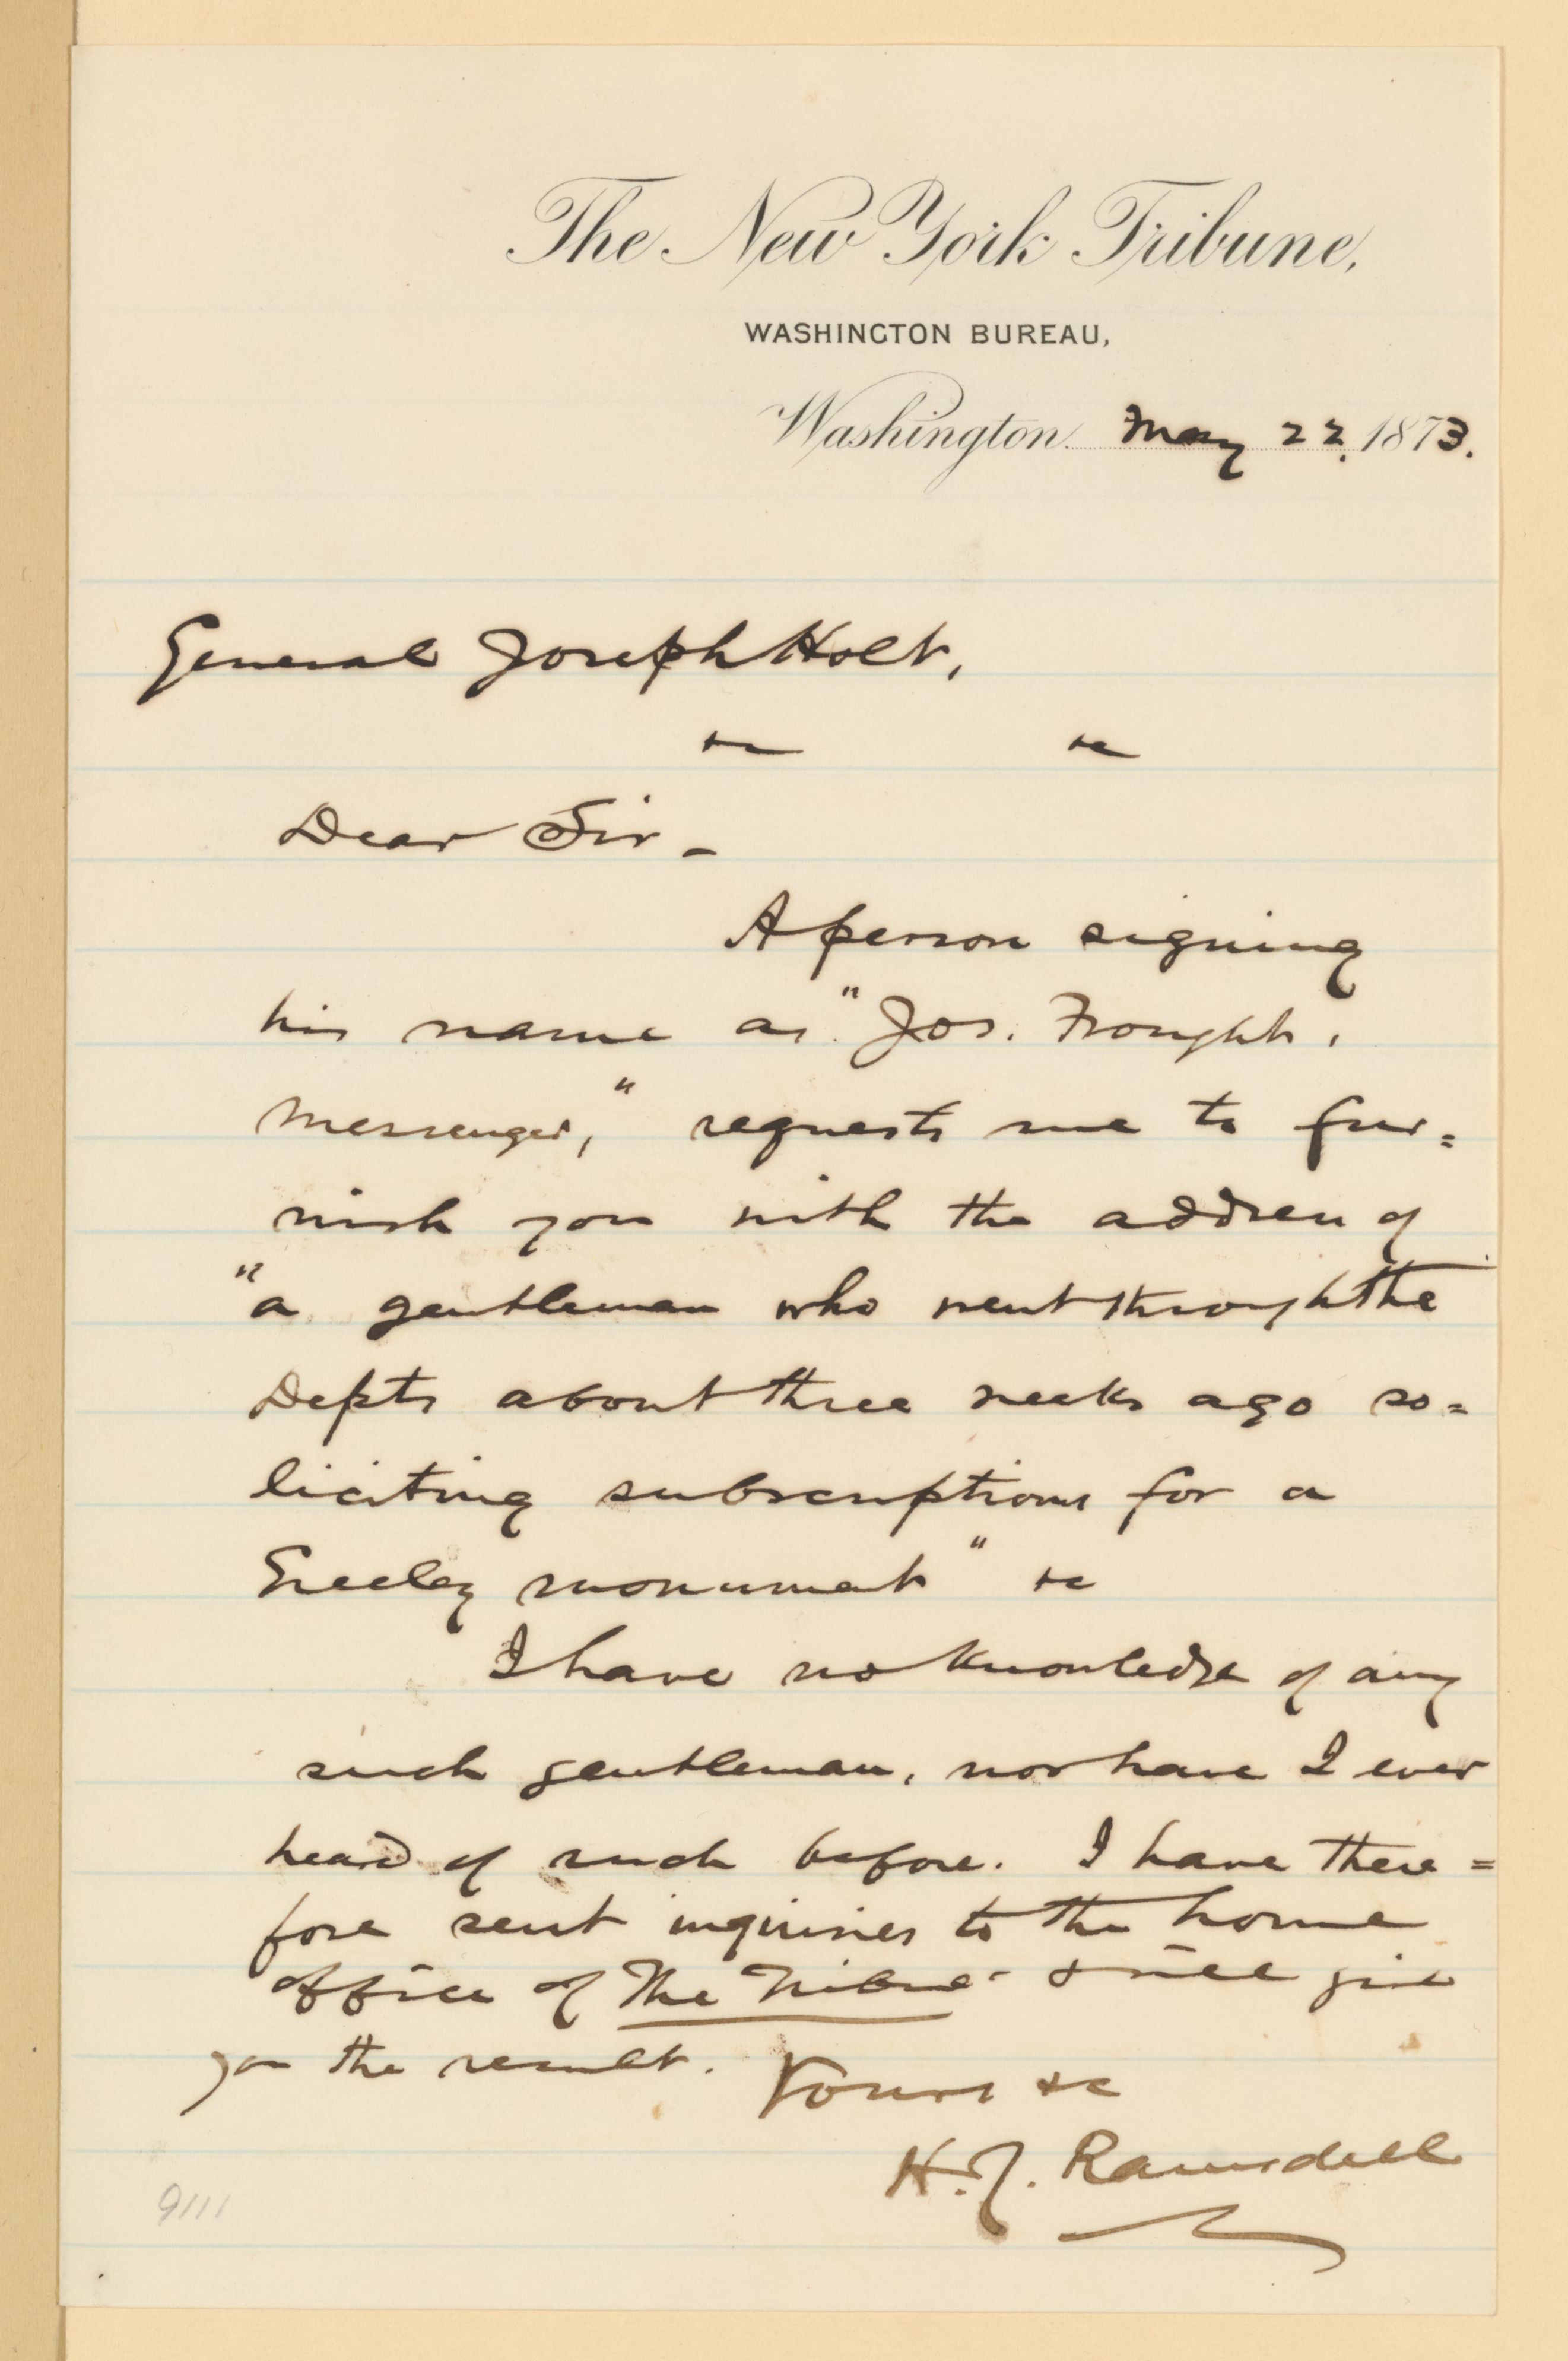 The New York Tribune,
WASHINGTON BUREAU,
Washington May 22. 1873.
General Joseph Holt,
&c &c
Dear Sir -
A person signing
his name as "Jos. Frought,
Messenger," requests me to fur=
nish you with the address of
"a gentleman who went through the
Depts about three weeks ago so=
liciting subscriptions for a
Greeley monument" &c
I have no knowledge of any
such gentleman, nor have I ever
heard of such before. I have there=
fore sent inquiries to the home
office of The Tribune & will give
you the result. Yours &c
H. J. Ramsdell
9111